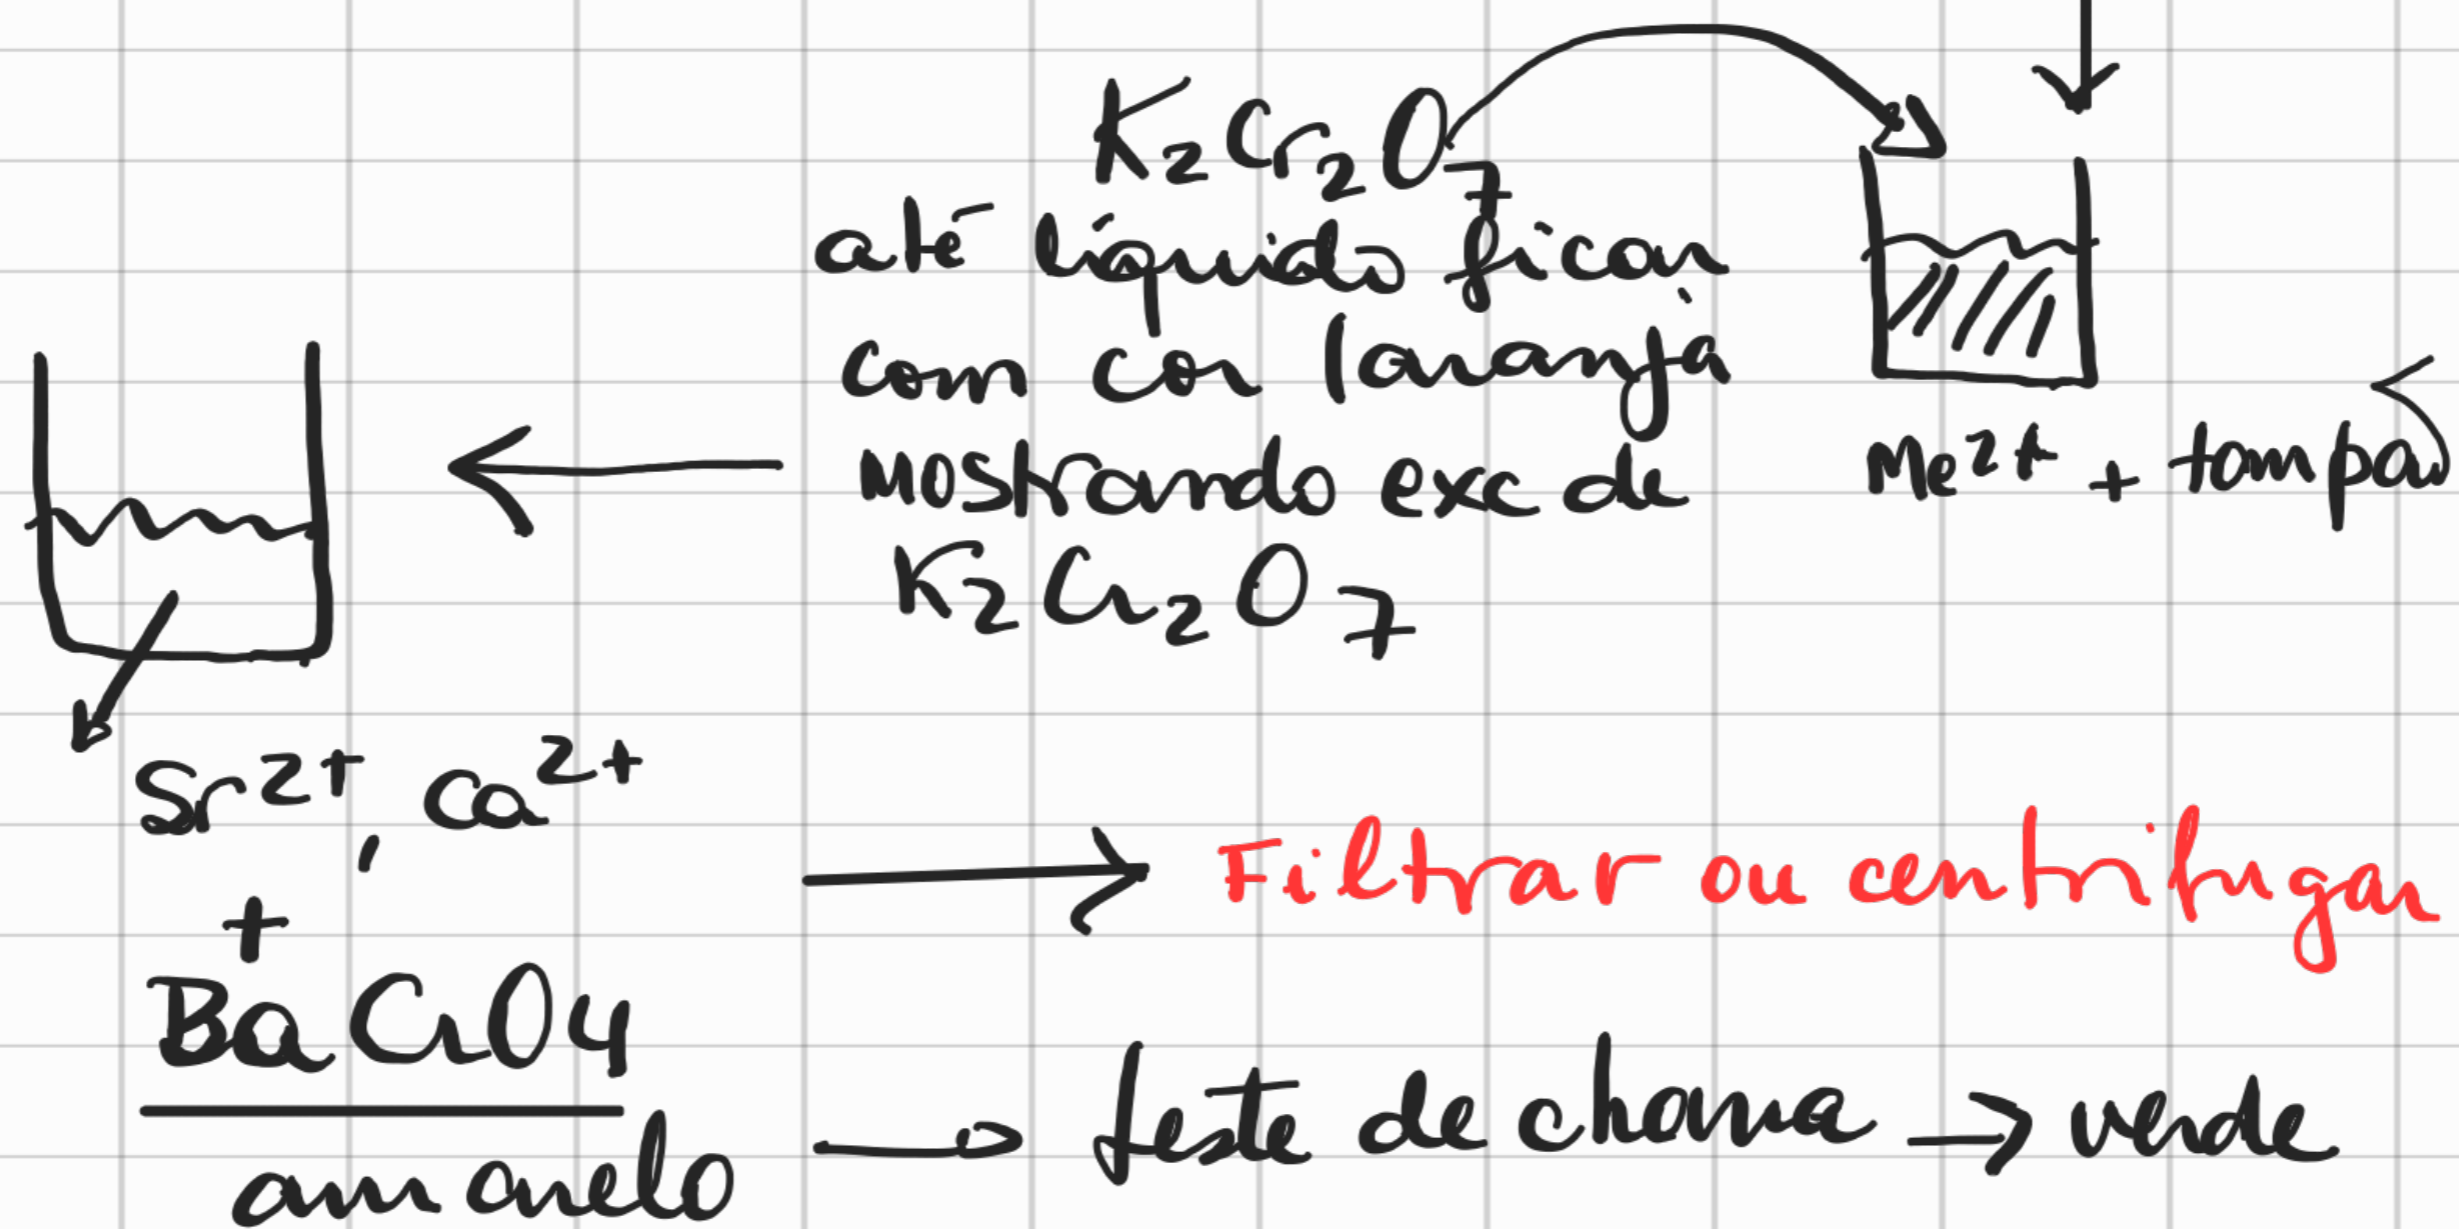 K₂Cr₂O₇
até líquido ficar
com cor laranja
mostrando exc de
K₂Cr₂O₇
Me²⁺ + tampa
Sr²⁺, Ca²⁺
+
BaCrO₄
amarelo
→ Filtrar ou centrifugar
→ teste de chama → verde